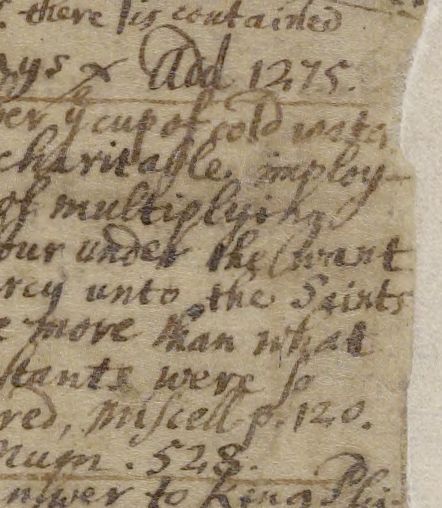 there is contained
ys & Add 1275.
er yͤ cup of cold water
charitable imploy-
of multiplying
our under the want
rcy unto the Saints
e more than what
tants were so
red, Miscell p. 120.
Num. 528.
nswer to King Phi-